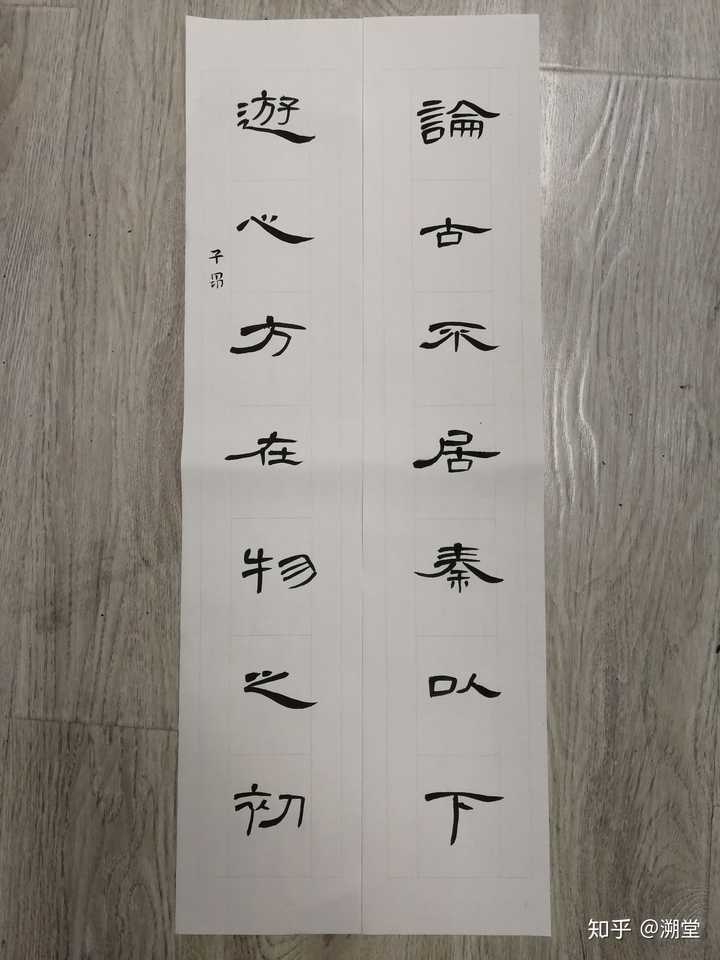 論古不居秦以下
遊心方在物之初
子昂
知乎 @溯堂